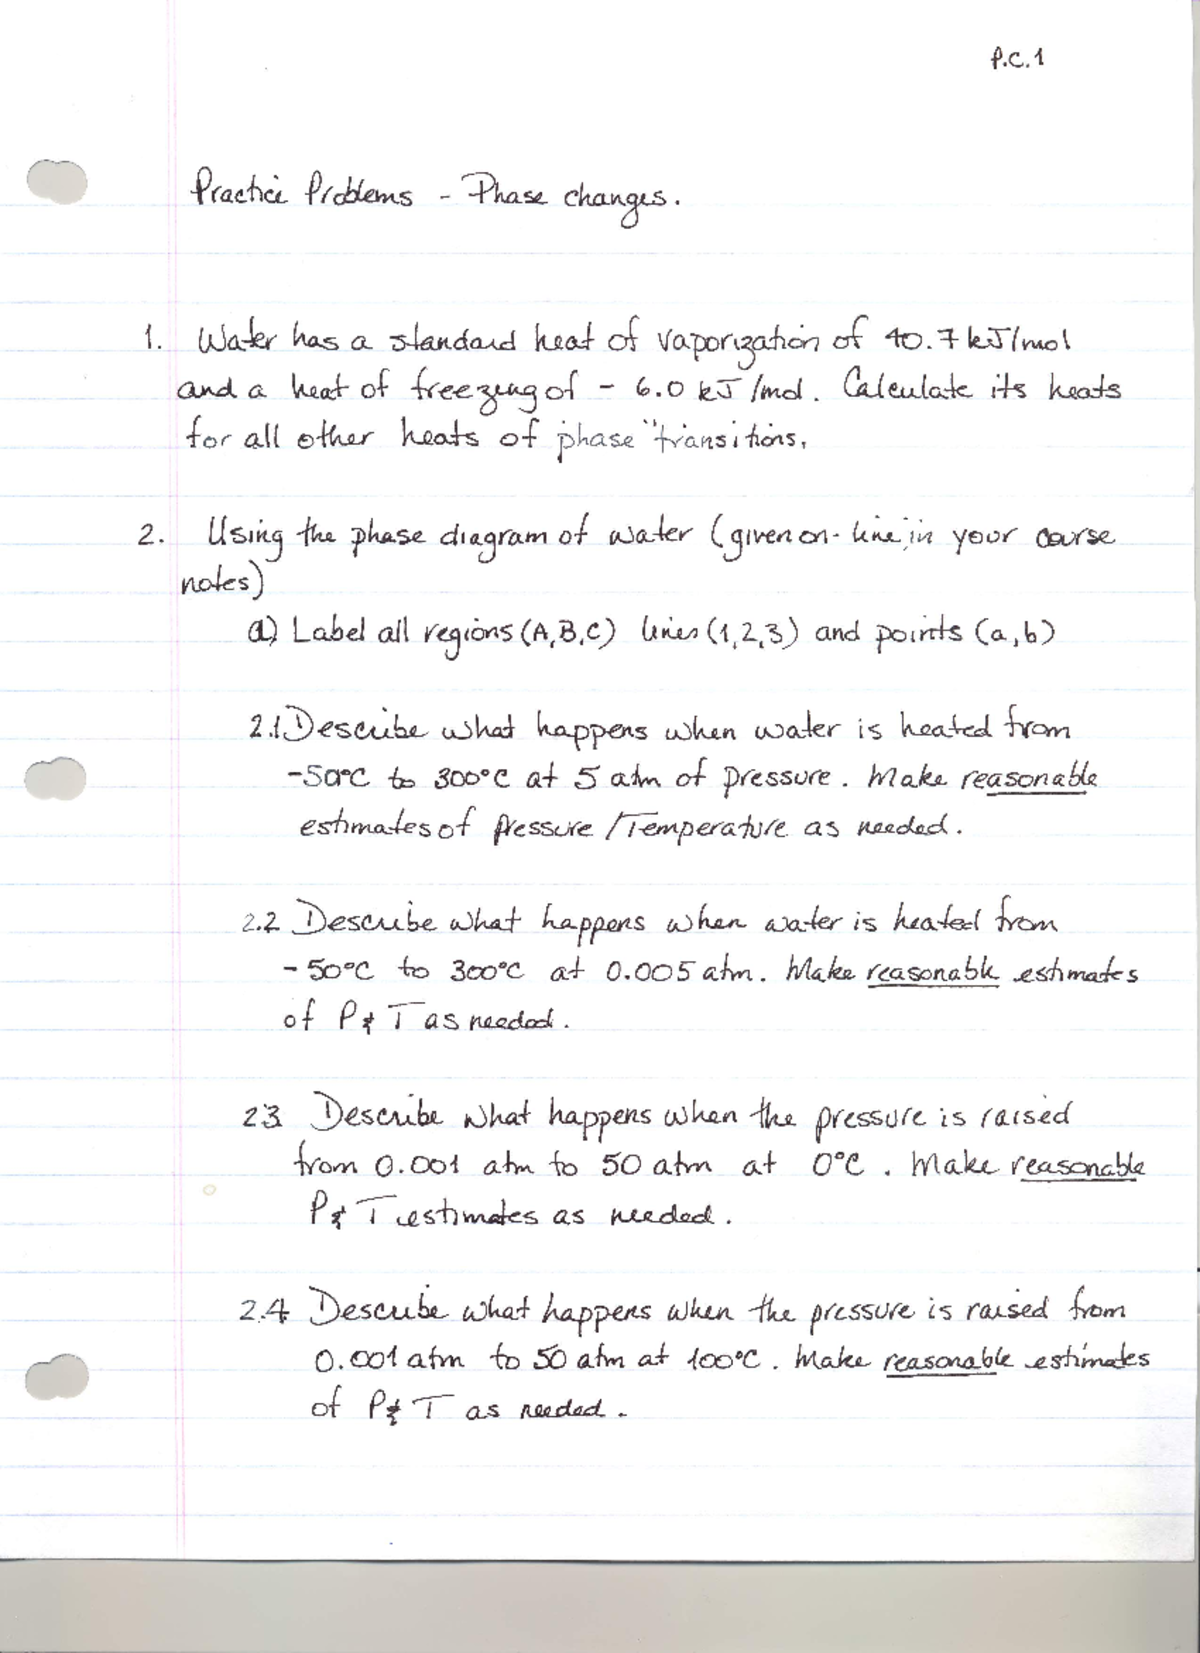 P.C.1
Practice Problems - Phase changes.
1. Water has a standard heat of vaporization of 40.7 kJ/mol
and a heat of freezing of - 6.0 kJ/mol. Calculate its heats
for all other heats of phase "transitions.
2. Using the phase diagram of water (given on-line, in your course
notes)
a) Label all regions (A,B,C) lines (1,2,3) and points (a,b)
2.1 Describe what happens when water is heated from
-50°C to 300°C at 5 atm of pressure. Make reasonable
estimates of pressure / Temperature as needed.
2.2 Describe what happens when water is heated from
- 50°C to 300°C at 0.005 atm. Make reasonable estimates
of P & T as needed.
2.3 Describe what happens when the pressure is raised
from 0.001 atm to 50 atm at 0°C. Make reasonable
P & T estimates as needed.
2.4 Describe what happens when the pressure is raised from
0.001 atm to 50 atm at 100°C. Make reasonable estimates
of P & T as needed.